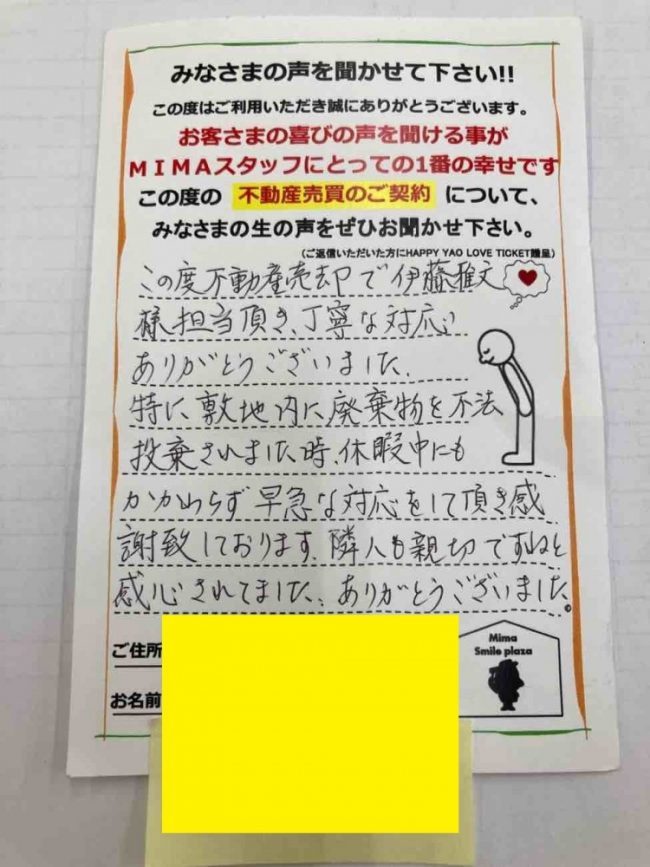 みなさまの声を聞かせて下さい!!
この度はご利用いただき誠にありがとうございます。
お客さまの喜びの声を聞ける事が
MIMAスタッフにとっての1番の幸せです
この度の 不動産売買のご契約 について、
みなさまの生の声をぜひお聞かせ下さい。
(ご返信いただいた方にHAPPY YAO LOVE TICKET贈呈)
この度不動産売却で伊藤雅文
様担当頂き、丁寧な対応
ありがとうございました。
特に敷地内に廃棄物を不法
投棄されました時、休暇中にも
かかわらず早急な対応をして頂き感
謝致しております。隣人も親切ですねと
感心されてました、ありがとうございました。
ご住所
お名前
Mima
Smile plaza